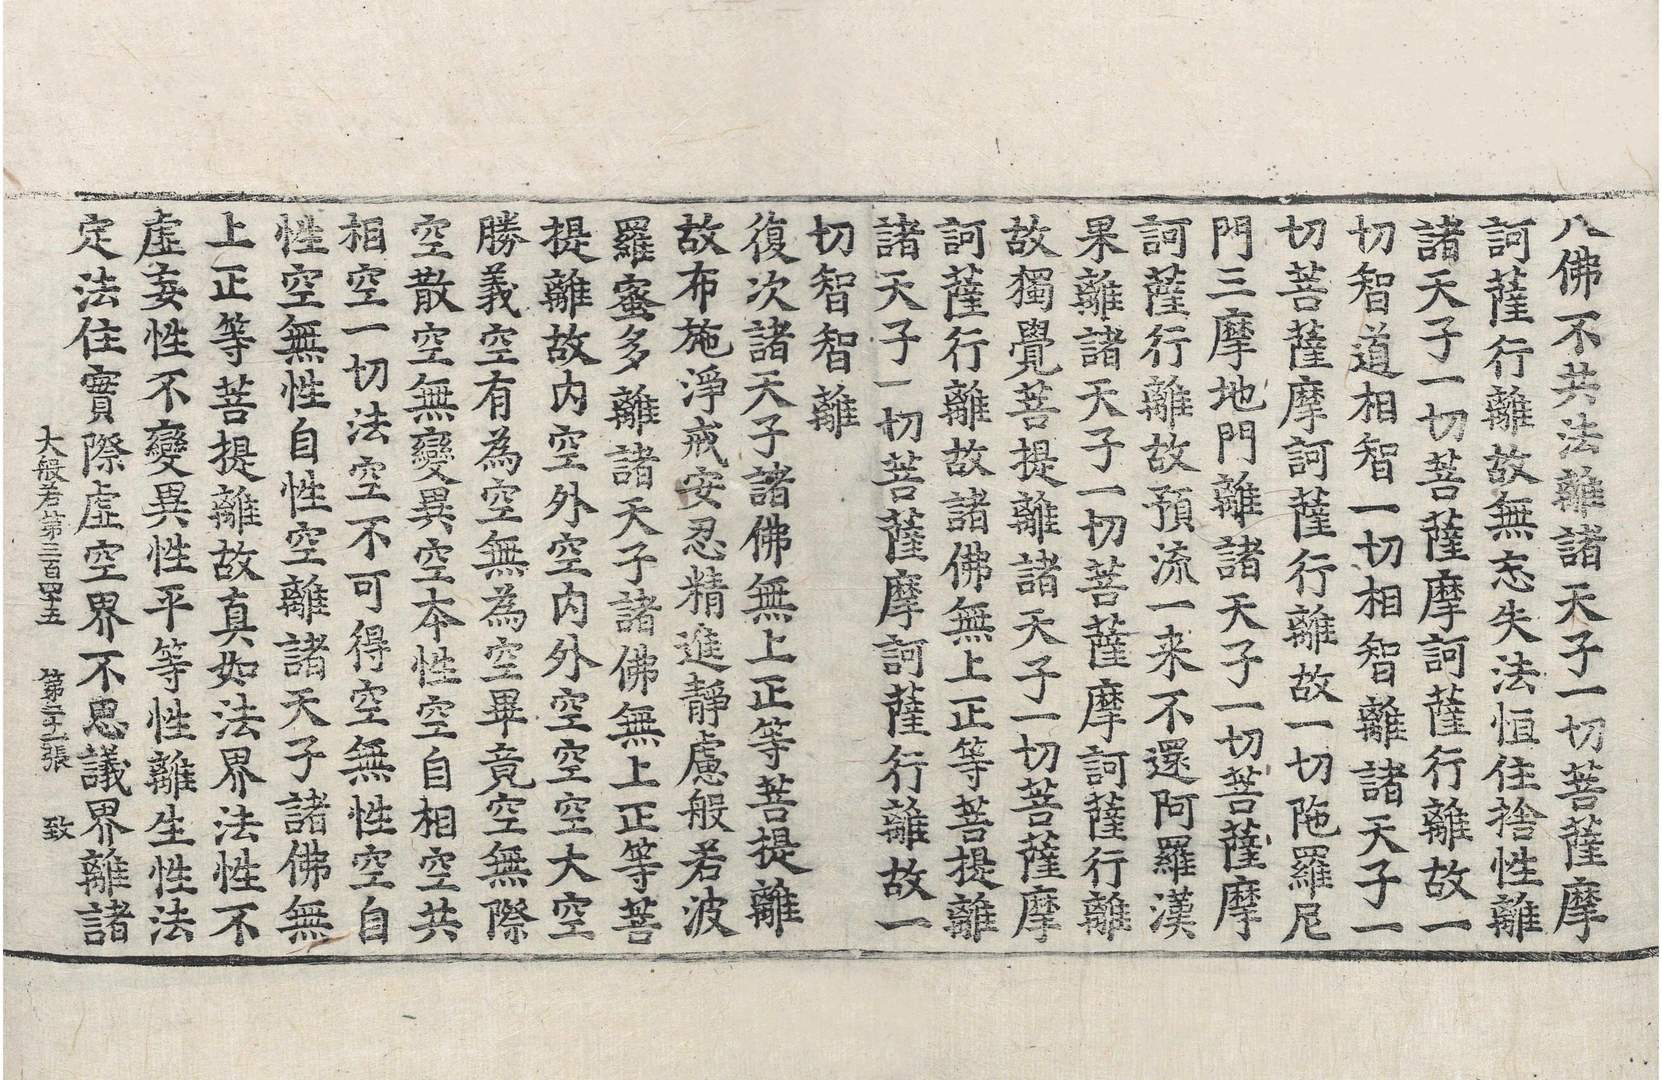 八佛不共法離諸天子一切菩薩摩
訶薩行離故無忘失法恒住捨性離
諸天子一切菩薩摩訶薩行離故一
切智道相智一切相智離諸天子一
切菩薩摩訶薩行離故一切陁羅尼
門三摩地門離諸天子一切菩薩摩
訶薩行離故預流一来不還阿羅漢
果離諸天子一切菩薩摩訶薩行離
故獨覺菩提離諸天子一切菩薩摩
訶薩行離故諸佛無上正等菩提離
諸天子一切菩薩摩訶薩行離故一
切智智離
復次諸天子諸佛無上正等菩提離
故布施淨戒安忍精進靜慮般若波
羅蜜多離諸天子諸佛無上正等菩
提離故内空外空内外空空空大空
勝義空有為空無為空畢竟空無際
空散空無變異空本性空自相空共
相空一切法空不可得空無性空自
性空無性自性空離諸天子諸佛無
上正等菩提離故真如法界法性不
虛妄性不變異性平等性離生性法
定法住實際虛空界不思議界離諸
大般若第三百四十五　第二十一張　致